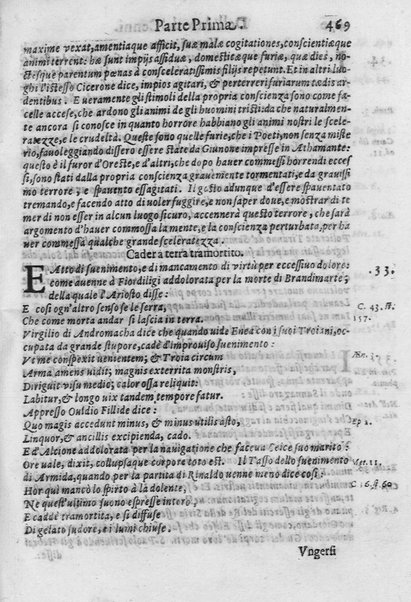 Parte Prima. 469
maxime vexat, amentiaque afficit, suæ malæ cogitationes, conscientiæque
animi terrent: hæ sunt impijs assiduæ, domesticæque furiæ, quæ dies, no-
ctesque parentum pœnas à consceleratissimis filijs repetunt. Et in altri luo-
ghi l'istesso Cicerone dice, impios agitari, & perterreri furiarum tædis ar
dentibus. E veramente gli stimoli della propria conscienza sono come fa-
celle accese, che ardono gli animi de gli huomini tristi: da che naturalmen-
te ancora si conosce in quanto horrore habbiano gli animi nostri le scele-
ratezze, e le crudeltà. Queste sono quelle furie, che i Poeti, non senza miste
rio, fauoleggiando dissero essere state da Giunone impresse in Athamante:
questo è il furor d'Oreste, e d'altri, che dopo hauer commessi horrendi ecces
si, sono stati dalla propria conscienza grauemente tormentati, e da grauissi
mo terrore, e spauento essagitati. Il gesto adunque d'essere spauentato
tremando, e facendo atto di voler fuggire, e non saper doue, e mostrar di te
mer di non esser in alcun luogo sicuro, accennerà questo terrore, che sarà
argomento d'hauer commossa la mente, e la conscienza perturbata, per ha
uer commessa qualche grande sceleratezza.
Cader a terra tramortito.
E Atto di suenimento, e di mancamento di virtù per eccessiuo dolore: 33.
come auenne à Fiordiligi addolorata per la morte di Brandimarte;
della quale l'Ariosto disse:
E così ogn'altro senso se le serra, C. 43. st.
Che come morta andar si lascia in terra. 157.
Virgilio di Andromacha dice che quando vide Enea con i suoi Troiani, oc-
cupata da grande stupore, cadè d'improuiso suenimento:
Vt me conspexit venientem; & Troia circum Æn. 3.
Arma amens vidit; magnis exterrita monstris,
Diriguit visu medio; calor ossa reliquit:
Labitur, & longo vix tandem tempore fatur.
Appresso Ouidio Fillide dice:
Quo magis accedunt minus, & minus vtilis asto, Ep 2.
Linquor, & ancillis excipienda, cado.
E d'Alcione addolorata per la nauigatione che faceua Ceice suo marito:
Ore vale, dixit, collapsaque corpore toto est. Il Tasso dello suenimento Met. 11.
di Armida, quando per la partita di Rinaldo venne meno dice così: C. 16. st. 60
Hor qui mancò lo spirto à la dolente,
Ne quest'vltimo suono espresse intero;
E cadde tramortita, e si diffuse
Di gelato sudore, e i lumi chiuse.
Vngersi